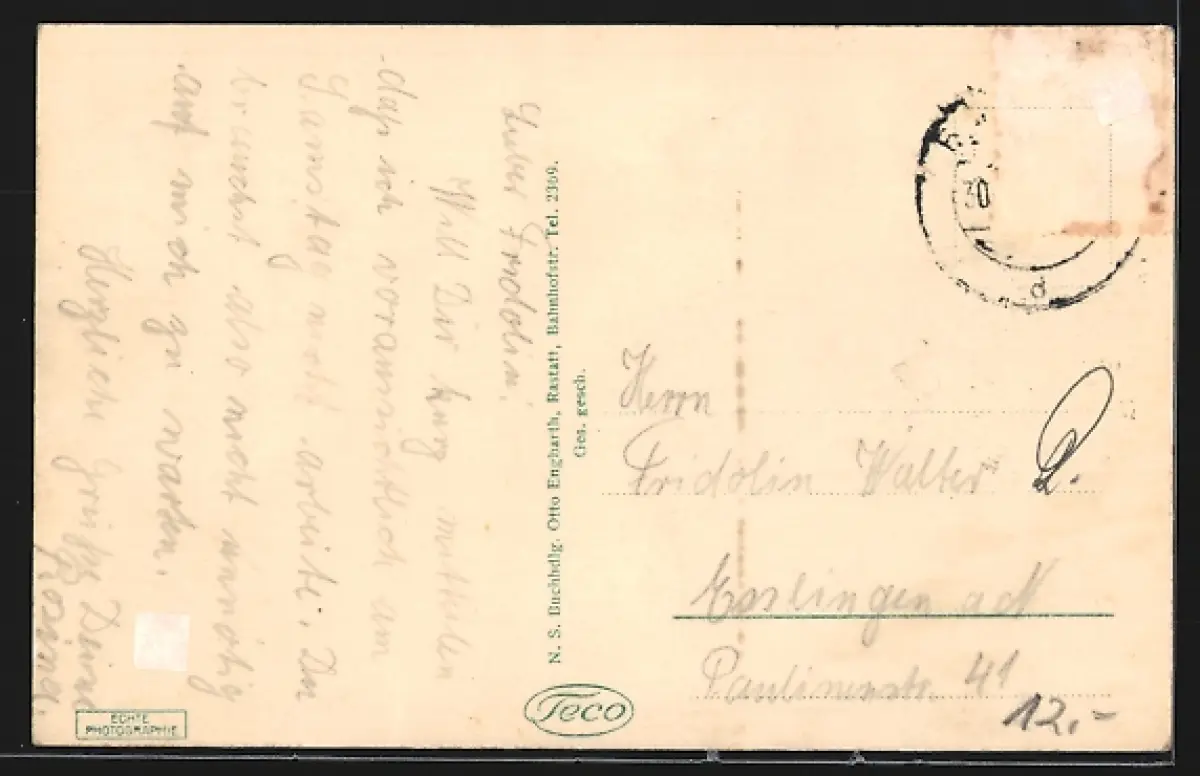 Lieber Fridolin.
Will Dir kurz mitteilen
daß ich voraussichtlich am
Samstag nicht arbeite. Du
brauchst also nicht unnötig
auf mich zu warten.
Herzliche Grüße Deine
Rosina.
N. S. Buchhdlg. Otto Engharth, Rastatt, Bahnhofstr. Tel. 2369.
Ges. gesch.
30
d
Herrn
Fridolin Walter
Esslingen a/N
Paulinenstr 41
12.-
Teco
ECHTE
PHOTOGRAPHIE